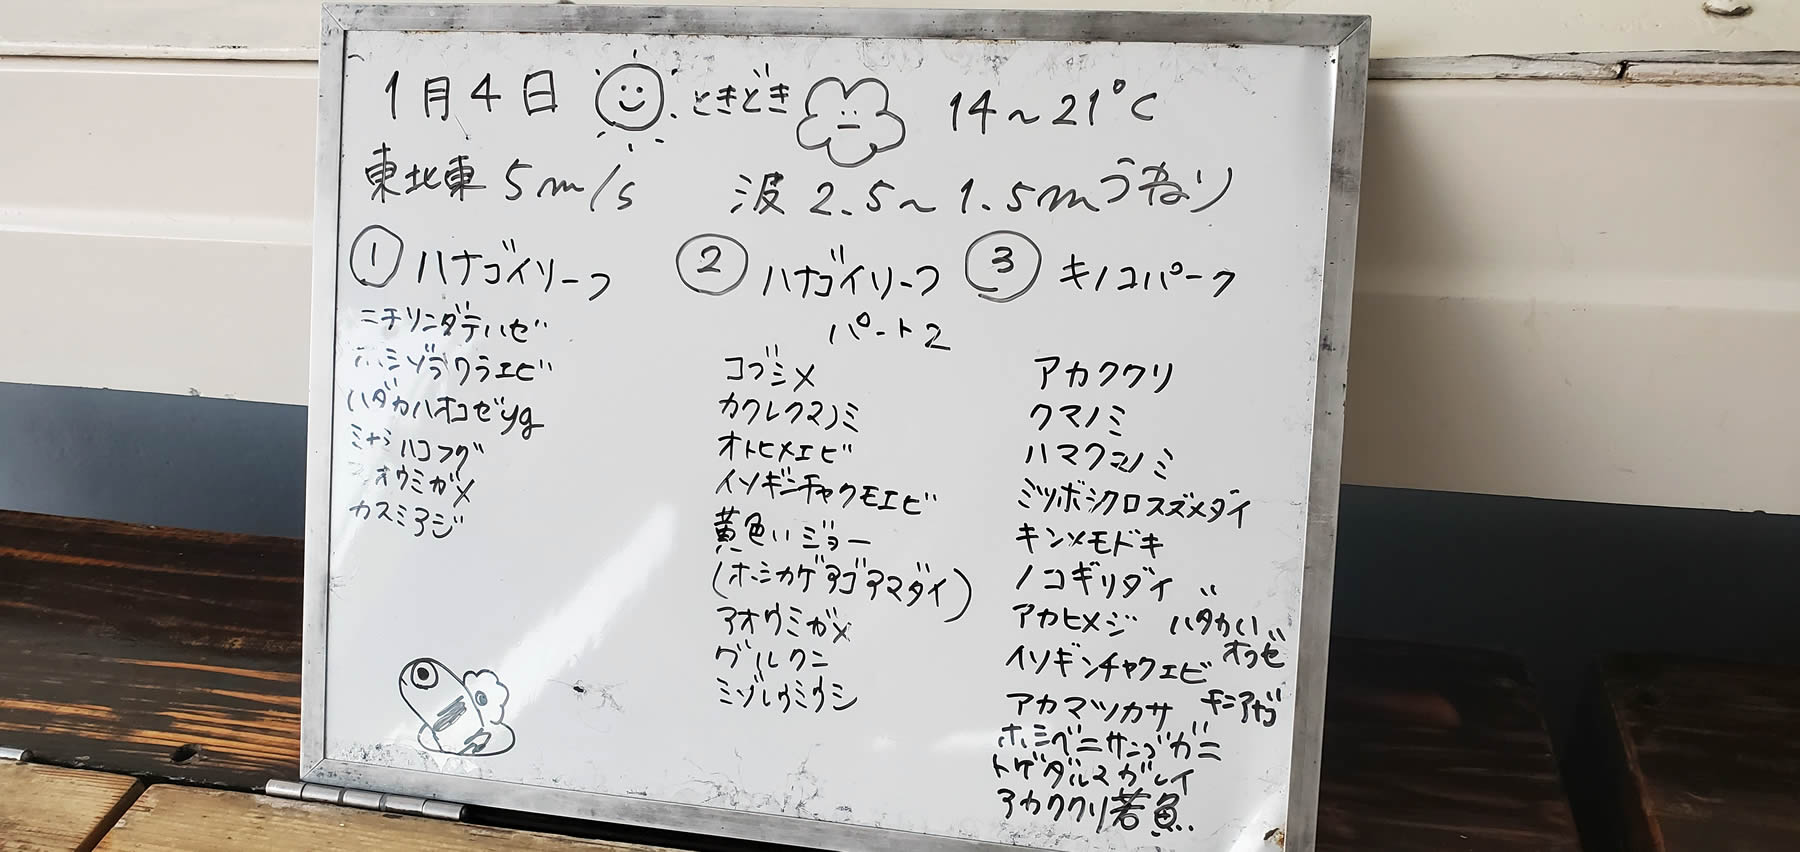 1月4日 ときどき 14～21℃
東北東 5m/s 波 2.5～1.5mうねり
① ハナゴイリーフ
ニチリンダテハゼ
ホシゾラワラエビ
ハダカハオコゼyg
ミナミハコフグ
アオウミガメ
カスミアジ
② ハナゴイリーフ
パート2
コブシメ
カクレクマノミ
オトヒメエビ
イソギンチャクモエビ
黄色いジョー
(ホシカゲアゴアマダイ)
アオウミガメ
グルクン
ミゾレウミウシ
③ キノコパーク
アカククリ
クマノミ
ハマクマノミ
ミツボシクロスズメダイ
キンメモドキ
ノコギリダイ
アカヒメジ
イソギンチャクエビ
アカマツカサ
ホシベニサンゴガニ
トゲダルマガレイ
アカククリ若魚
ハダカハ
オコゼ